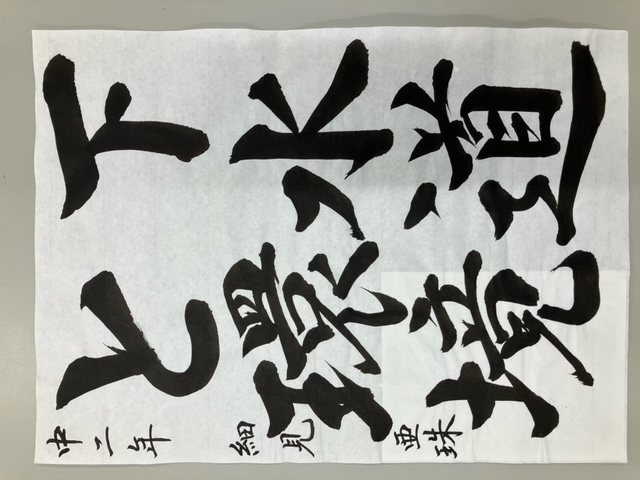 下水道
と環境
中二年 細見 亜珠